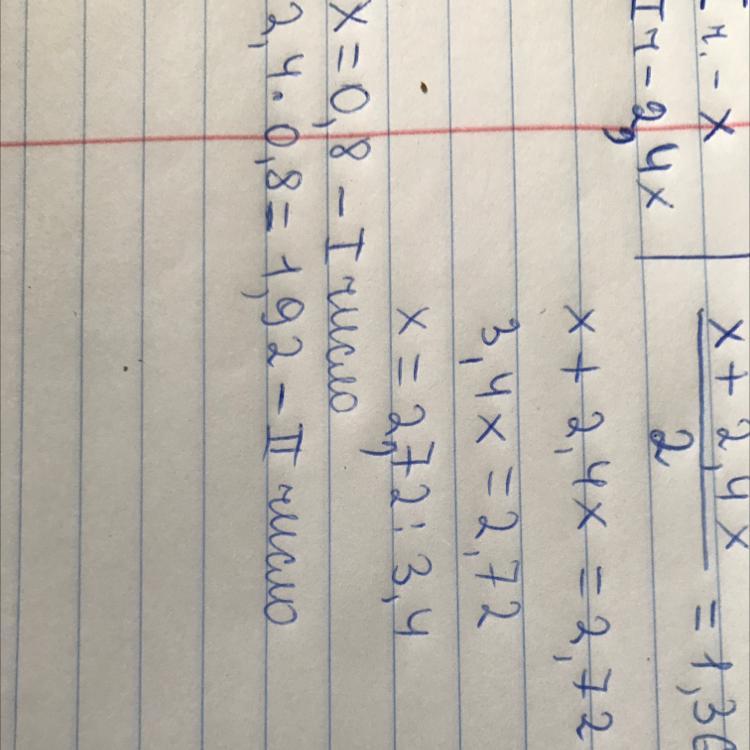 I ч. - x
II ч - 2,4x
x + 2,4x / 2 = 1,36
x + 2,4x = 2,72
3,4x = 2,72
x = 2,72 : 3,4
x = 0,8 - I число
2,4 · 0,8 = 1,92 - II число